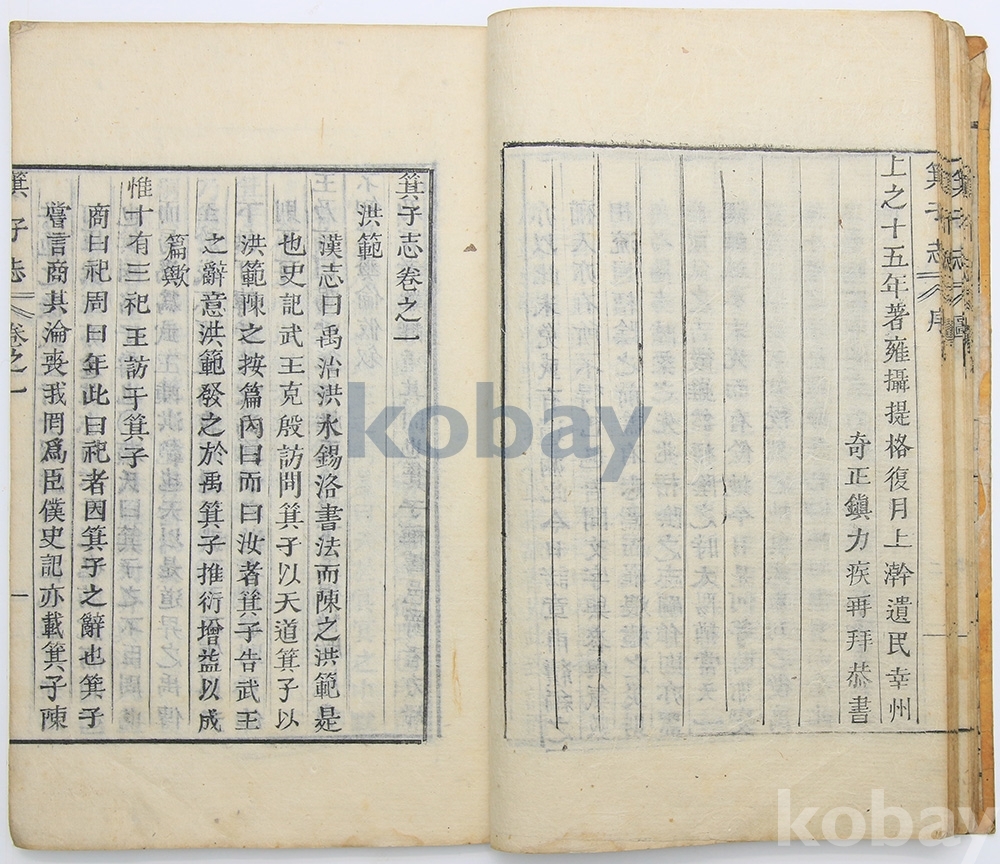 箕子志序
上之十五年著雍攝提格復月上澣遺民幸州
奇正鎭力疾再拜恭書
箕子志卷之一
洪範
漢志曰禹治洪水錫洛書法而陳之洪範是
也史記武王克殷訪問箕子以天道箕子以
洪範陳之按篇內曰而曰汝者箕子告武王
之辭意洪範發之於禹箕子推衍增益以成
篇歟
惟十有三祀王訪于箕子
商曰祀周曰年此曰祀者因箕子之辭也箕子
嘗言商其淪喪我罔爲臣僕史記亦載箕子陳
箕子志 卷之一 一
kobay
kobay